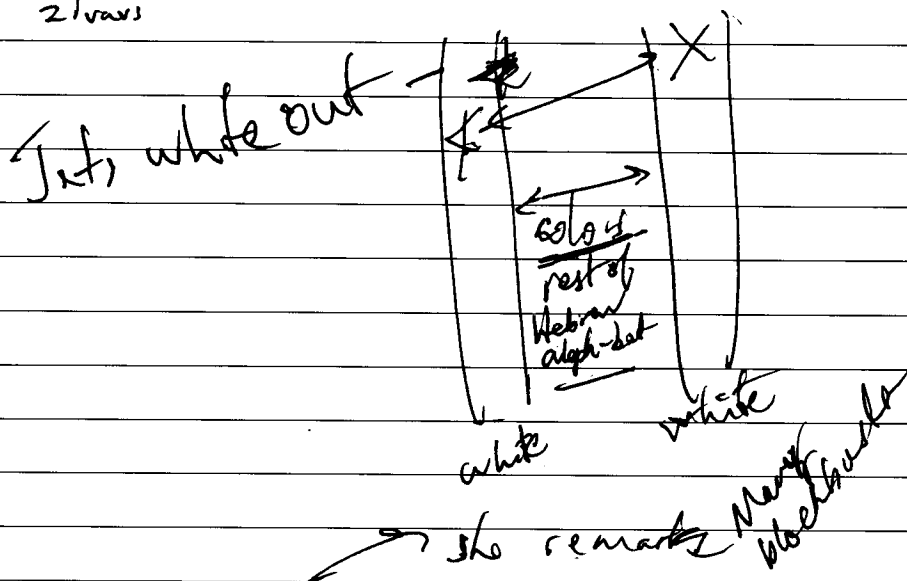 white out
X
colors
rest of
Hebrew
aleph-bet
white
white
she remarks
Many
blockbusts